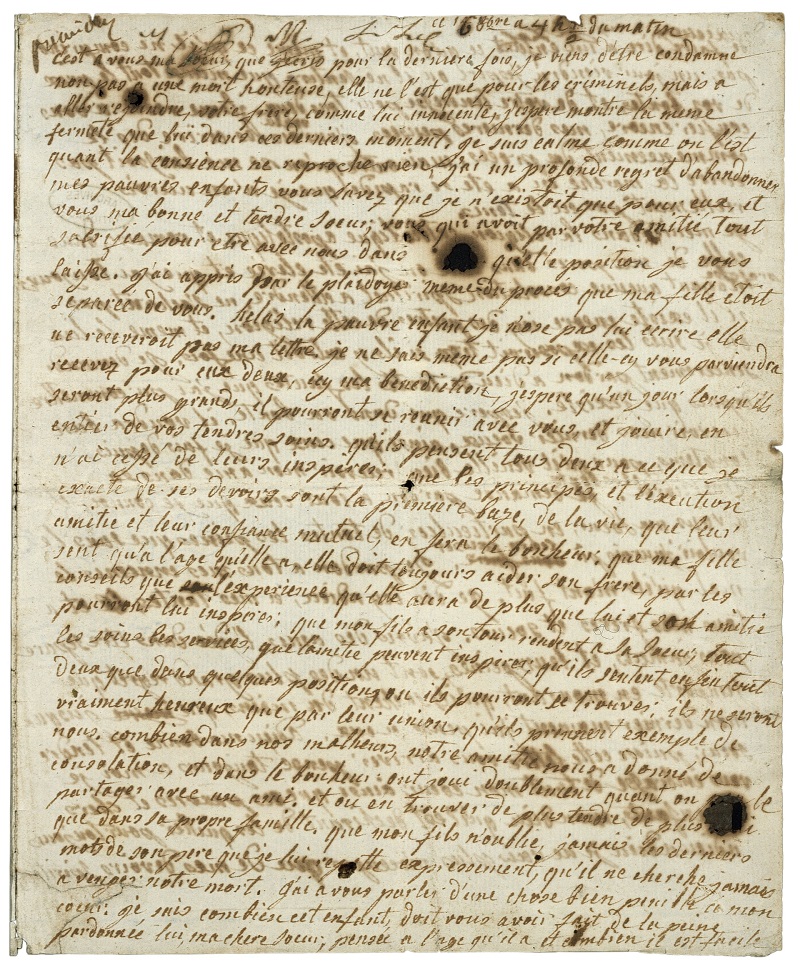 ce 16 8bre a 4 h ½ du matin
c'est a vous ma soeur, que j'ecris pour la derniere fois, je viens d'etre condamne
non pas a une mort honteuse, elle ne l'est que pour les criminels, mais a
aller rejoindre, votre frere, comme lui innocente, j'espere montre la meme
fermeté que lui dans ces derniers moment. je suis calme comme on l'est
quant la consience ne riproche rien, j'ai un profonde regret d'abandonner
mes pauvres enfants vous savez que je n existoit que pour eux, et
vous ma bonne et tendre soeur, vous qui avoit par votre amitié tout
sacrifié pour etre avec nous dans quelle position je vous
laisse. j'ai appris par le plaidoyer meme du proces que ma fille etoit
separée de vous. helas la pauvre enfant je n'ose pas lui ecrire elle
ne receveroit pas ma lettre. je ne sais meme pas si celle-cy vous parviendra
recevez pour eux deux, icy ma benediction, j'espere qu'un jour lorsqu'ils
seront plus grands, il pourront se reunir avec vous, et jouire, en
entier de vos tendres soins. qu'ils pensent tous deux a ce que je
n'ai cessé de leurs inspirer; que les principes, et l'execution
exacte de ses devoirs sont la premiere baze, de la vie, que leur
amitie et leur confiance mutuel, en fera le bonheur. que ma fille
sent qu'a l'age qu'elle a elle doit toujours aider son frere, par les
conseils que l'experience qu'elle aura de plus que lui et son amitie
pourront lui inspirer; que mon fils a son tour rendent a sa soeur, tout
les soins les services, que l'amitié peuvent inspirer; qu'ils sentent enfin tout
deux que dans quelques positions ou ils pourront se trouver; ils ne seront
vraiment heureux que par leur union, qu'ils prennent exemple de
nous. combien dans nos malheurs, notre amitie nous a donné de
consolation, et dans le bonheur ont joui doublement quant on le
partager avec un ami. et ou en trouver de plus tendre de plus
que dans sa propre famille. que mon fils n'oublie, jamais les derniers
mots de son pere que je lui repette expressement, qu'il ne cherche jamais
a venger notre mort. j'ai a vous parler d'une chose bien penible a mon
coeur. je sais combiens cet enfant, doit vous avoir fait de la peine
pardonnée lui ma chere soeur; pensée a l'age qu'il a et combien il est facile